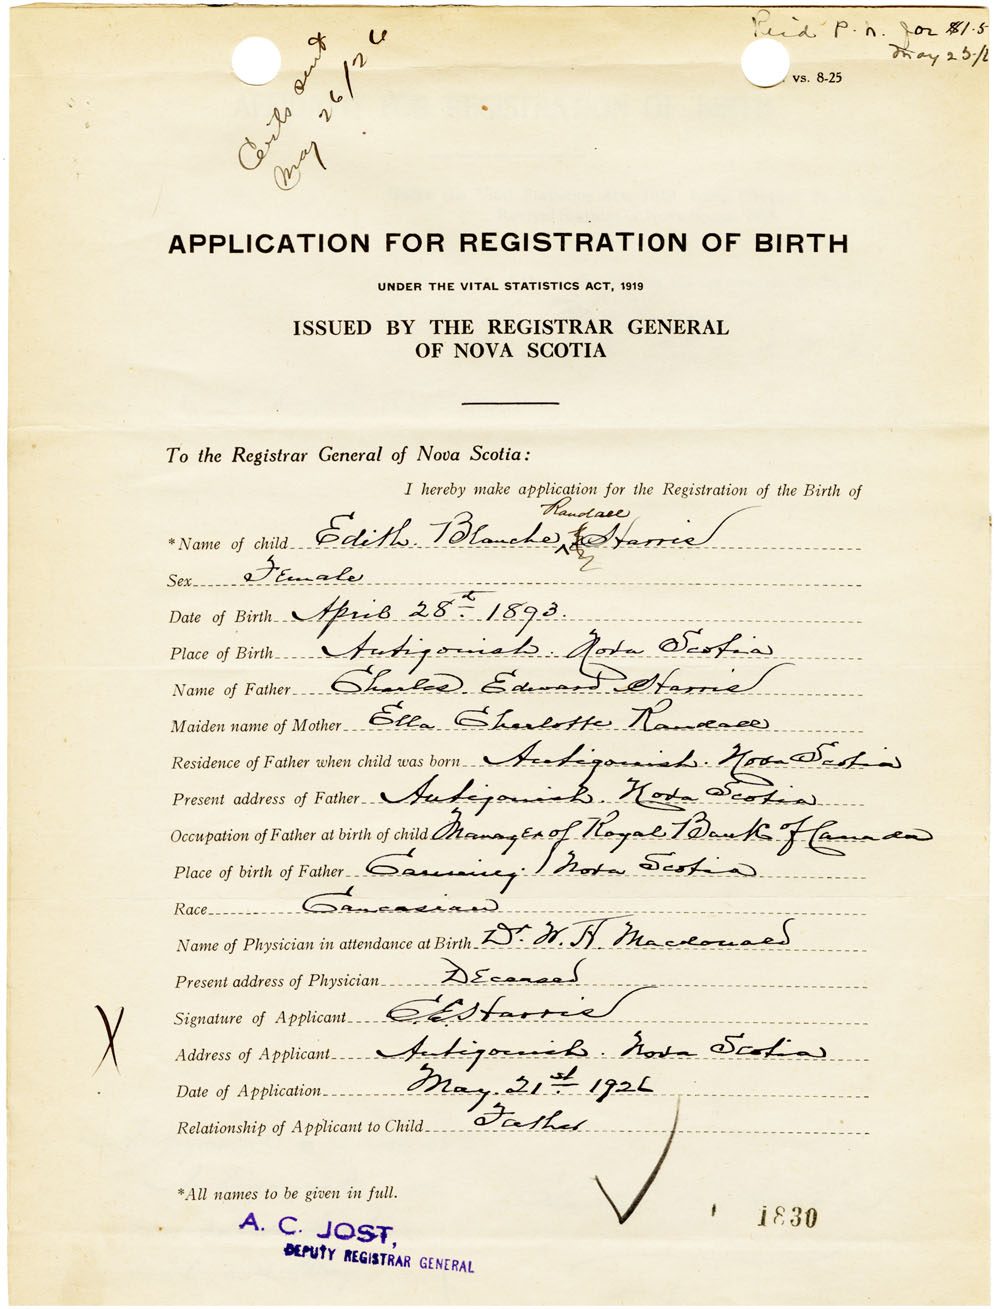 Certs sent
May 26/26
Paid P. N. for $1.5
May 25/2
vs. 8-25
APPLICATION FOR REGISTRATION OF BIRTH
UNDER THE VITAL STATISTICS ACT, 1919
ISSUED BY THE REGISTRAR GENERAL
OF NOVA SCOTIA
To the Registrar General of Nova Scotia:
I hereby make application for the Registration of the Birth of
Randall
*Name of child Edith. Blanche ^ Harris
Sex Female
Date of Birth April 28th. 1893.
Place of Birth Antigonish. Nova Scotia
Name of Father Charles. Edward Harris
Maiden name of Mother Ella Charlotte Randall
Residence of Father when child was born Antigonish. Nova Scotia
Present address of Father Antigonish. Nova Scotia
Occupation of Father at birth of child Manager of Royal Bank of Canada
Place of birth of Father Canning. Nova Scotia
Race Caucasian
Name of Physician in attendance at Birth Dr. W. H. Macdonald
Present address of Physician Deceased
Signature of Applicant C. E. Harris
X
Address of Applicant Antigonish. Nova Scotia
Date of Application May. 21st. 1926
Relationship of Applicant to Child Father
*All names to be given in full.
1830
A. C. JOST,
DEPUTY REGISTRAR GENERAL